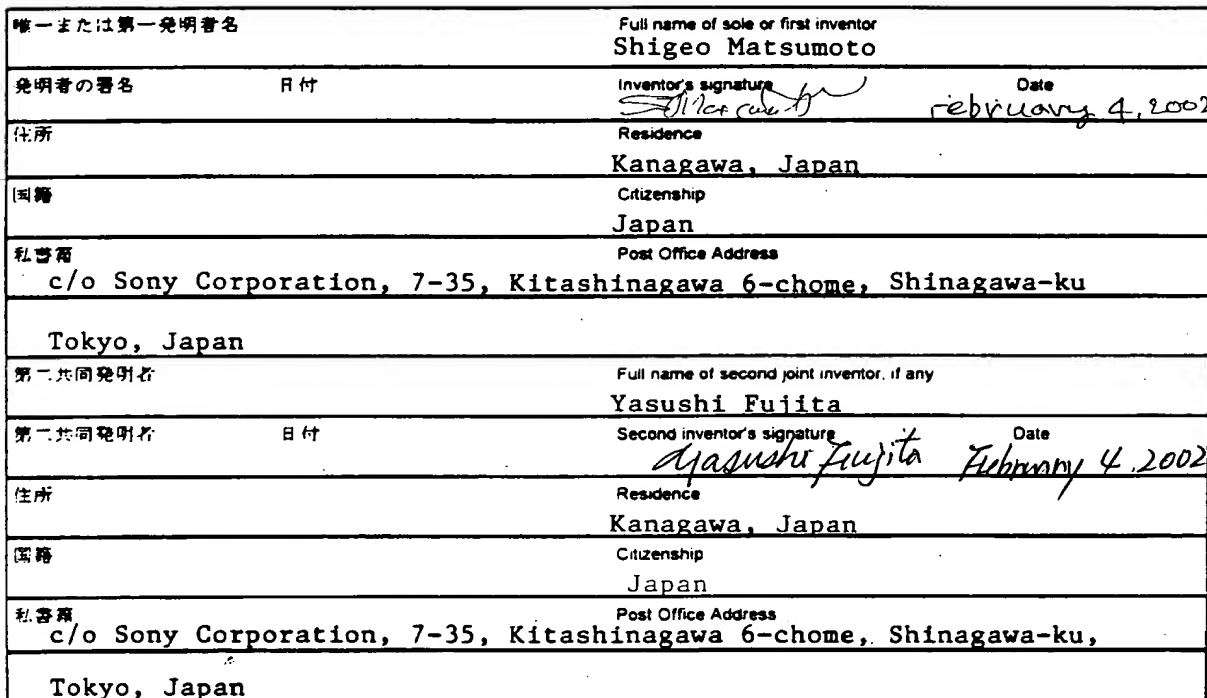 唯一または第一発明者名 Full name of sole or first inventor
Shigeo Matsumoto
発明者の署名 日付 Inventor's signature Date
February 4, 2002
住所 Residence
Kanagawa, Japan
国籍 Citizenship
Japan
私書箱 Post Office Address
c/o Sony Corporation, 7-35, Kitashinagawa 6-chome, Shinagawa-ku
Tokyo, Japan
第二共同発明者 Full name of second joint inventor, if any
Yasushi Fujita
第二共同発明者 日付 Second inventor's signature Date
Yasushi Fujita February 4, 2002
住所 Residence
Kanagawa, Japan
国籍 Citizenship
Japan
私書箱 Post Office Address
c/o Sony Corporation, 7-35, Kitashinagawa 6-chome, Shinagawa-ku,
Tokyo, Japan